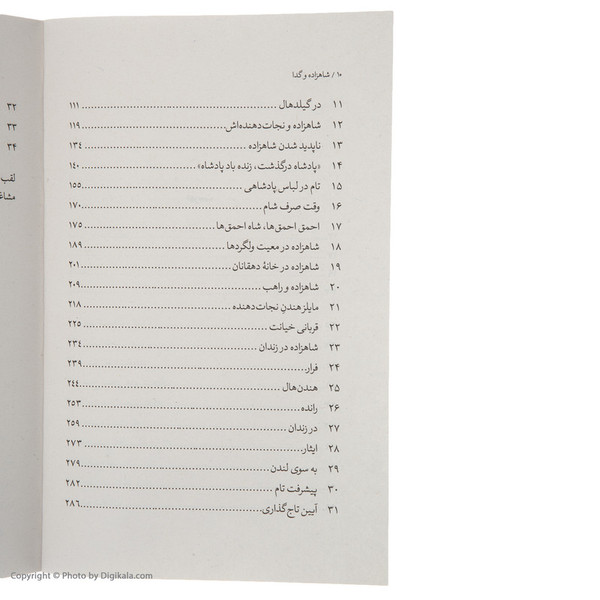 ۱۰ / شاهزاده و گدا
۱۱ در گیلدهال ۱۱۱
۱۲ شاهزاده و نجات‌دهنده‌اش ۱۱۹
۱۳ ناپدید شدن شاهزاده ۱۳۴
۱۴ «پادشاه درگذشت، زنده باد پادشاه» ۱۴۰
۱۵ تام در لباس پادشاهی ۱۵۵
۱۶ وقت صرف شام ۱۷۰
۱۷ احمق احمق‌ها، شاه احمق‌ها ۱۷۵
۱۸ شاهزاده در معیت ولگردها ۱۸۹
۱۹ شاهزاده در خانهٔ دهقانان ۲۰۱
۲۰ شاهزاده و راهب ۲۰۹
۲۱ مایلز هندنِ نجات‌دهنده ۲۱۸
۲۲ قربانی خیانت ۲۲۵
۲۳ شاهزاده در زندان ۲۳۴
۲۴ فرار ۲۳۹
۲۵ هندن‌هال ۲۴۴
۲۶ رانده ۲۵۳
۲۷ در زندان ۲۵۹
۲۸ ایثار ۲۷۳
۲۹ به سوی لندن ۲۷۹
۳۰ پیشرفت تام ۲۸۲
۳۱ آیین تاج‌گذاری ۲۸۶
۳۲
۳۳
۳۴
لقب
Copyright © Photo by Digikala.com